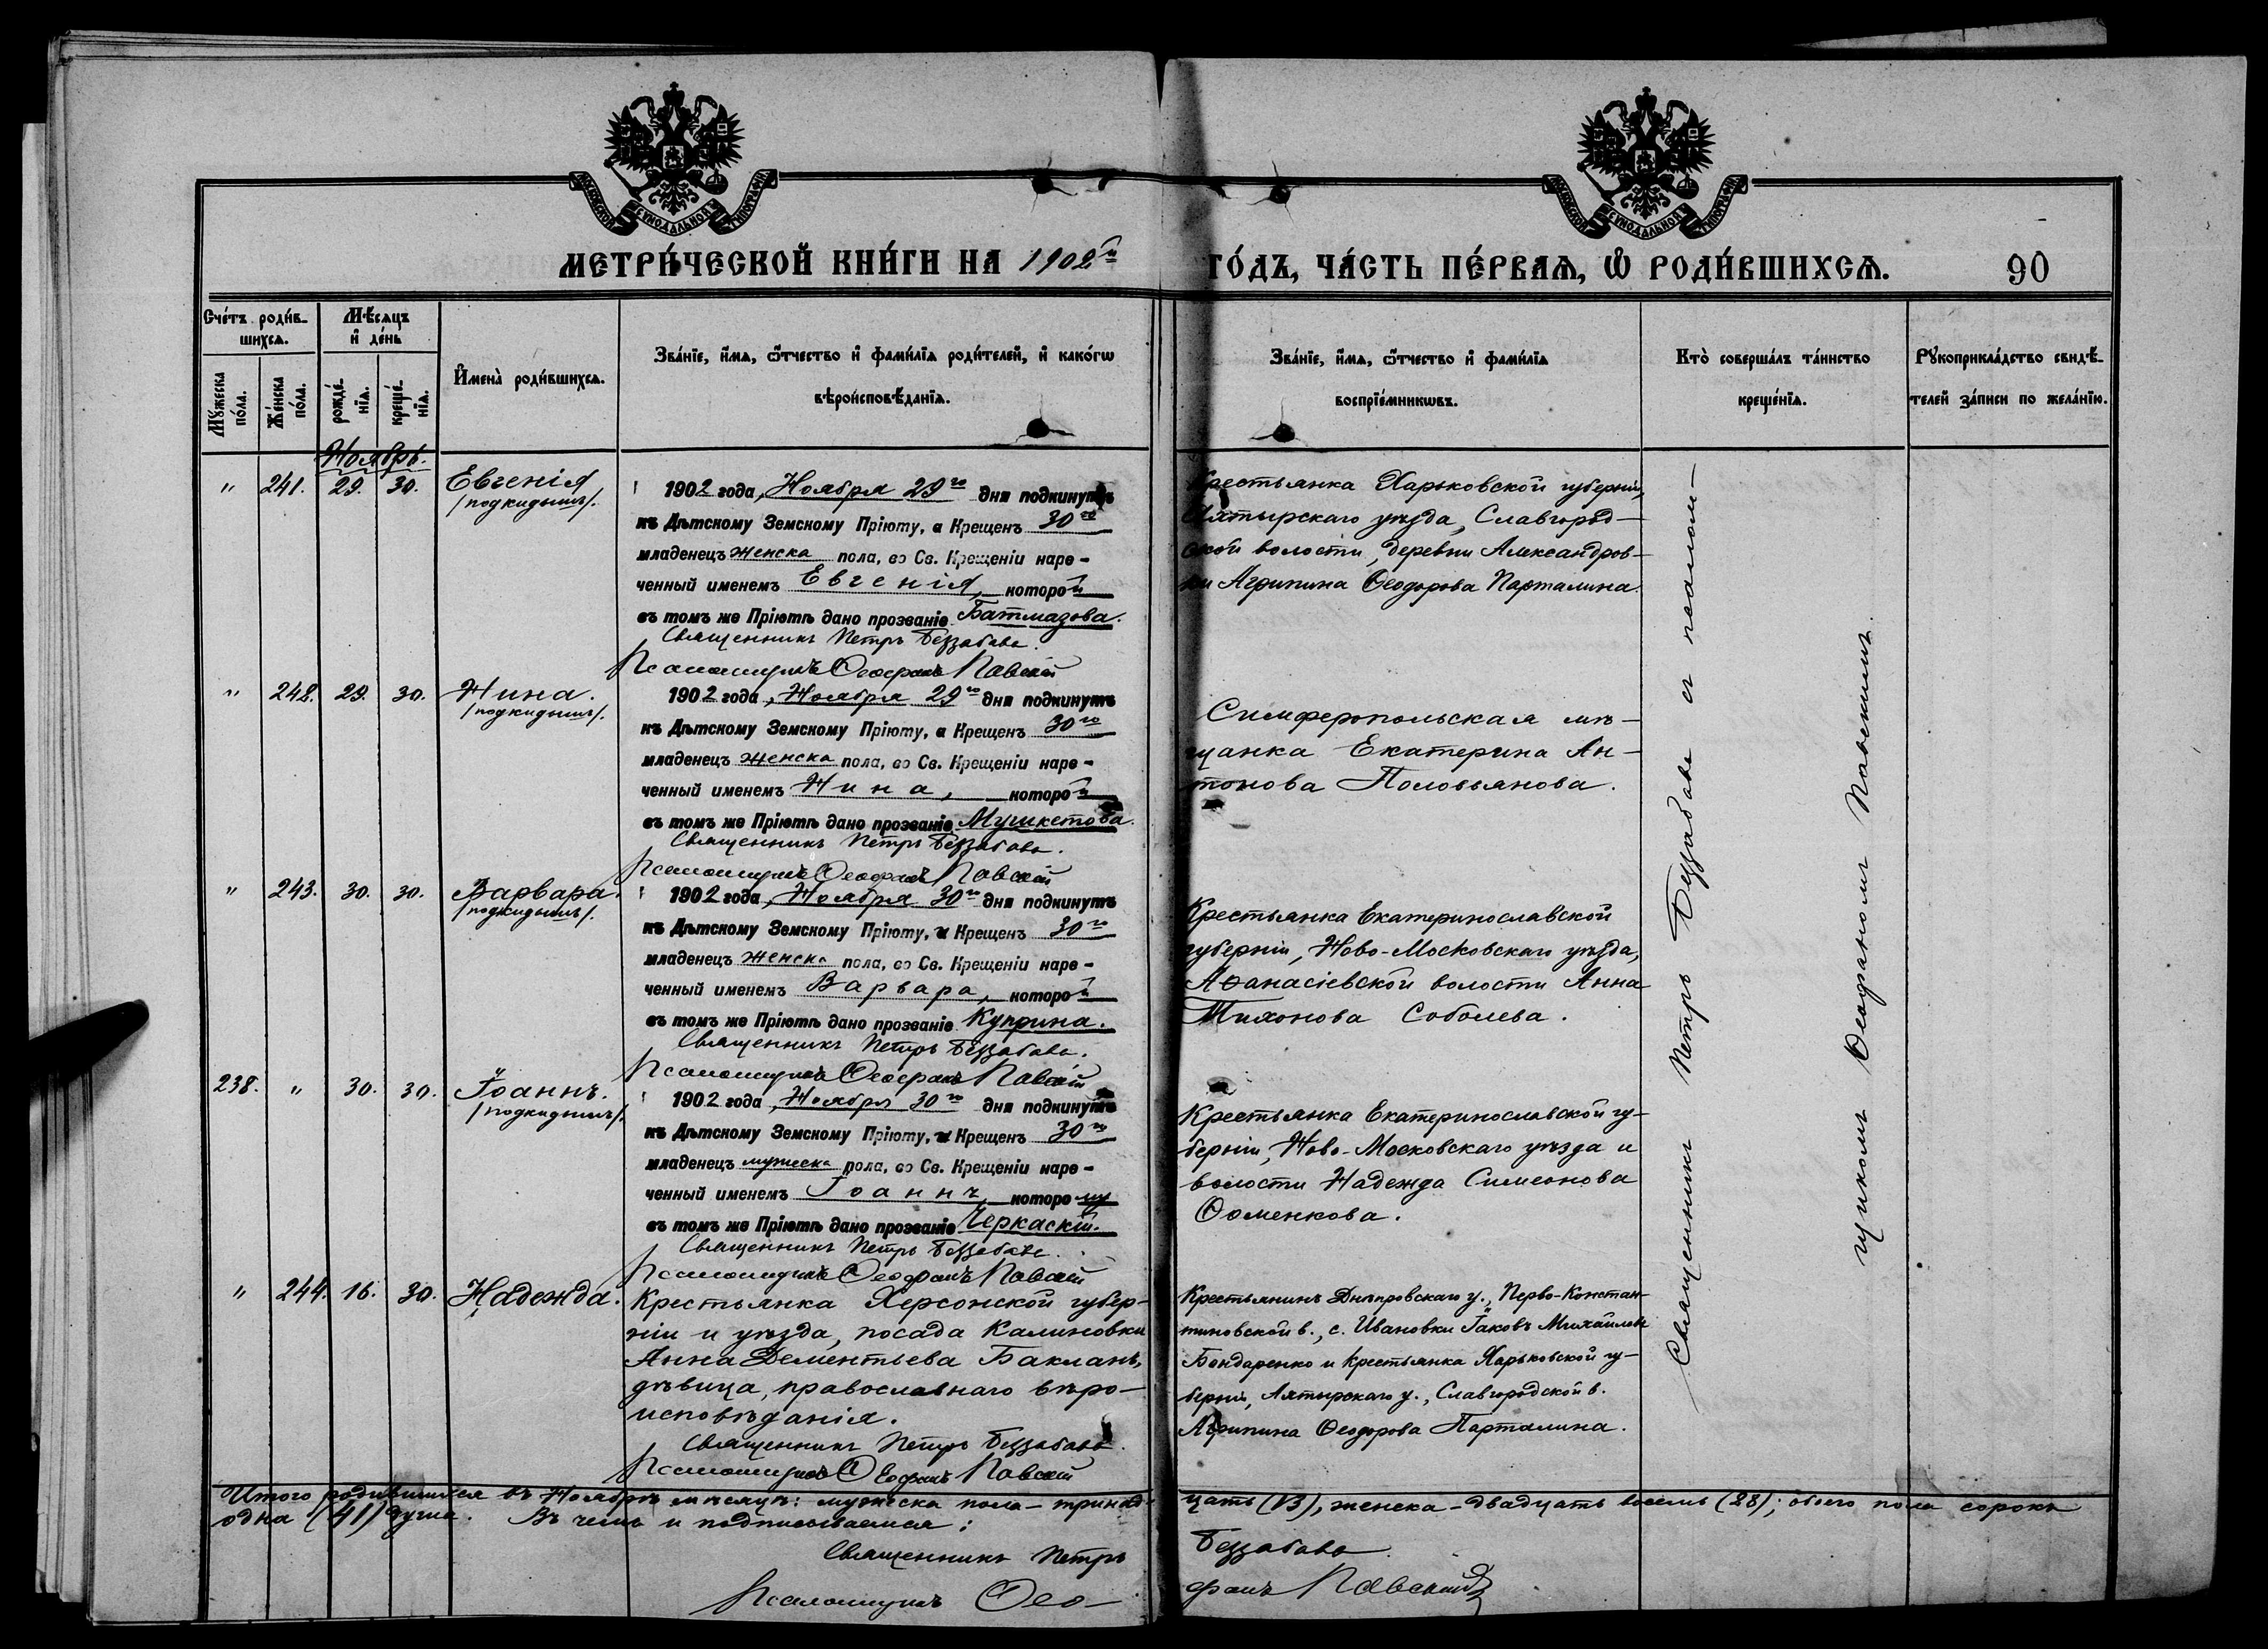 МОСКОВСКОЙ СѴНОДАЛЬНОЙ ТИПОГРАФІИ
МОСКОВСКОЙ СѴНОДАЛЬНОЙ ТИПОГРАФІИ
МЕТРИ́ЧЕСКОЙ КНИ́ГИ НА 1902й ГО́ДЪ, ЧА́СТЬ ПЕ́РВАѦ, Ѡ҆ РОДИ́ВШИХСѦ.
90
Сче́тъ роди́в-
шихсѧ.
Мꙋжеска по́ла.
Же́нска по́ла.
Мѣ́сѧцъ
и҆ де́нь
рожде́-
нїѧ.
креще́-
нїѧ.
И҆мена̀ роди́вшихсѧ.
Зва́нїе, и҆́мѧ, ѻ҆́тчество и҆ фами́лїѧ роди́телей, и҆ како́гѡ
вѣроисповѣ́данїѧ.
Зва́нїе, и҆́мѧ, ѻ҆́тчество и҆ фами́лїѧ
воспрїе́мникѡвъ.
Кто̀ соверша́лъ та́инство
креще́нїѧ.
Рꙋкоприкла́дство свидѣ́-
телей за́писи по жела́нїю.
Ноябрь.
" 241. 29. 30. Евгенія
/подкидышъ/.
1902 года, Ноября 29го дня подкинутъ
къ Дѣтскому Земскому Пріюту, а Крещенъ 30го
младенецъ женска пола, во Св. Крещеніи наре-
ченный именемъ Евгенія, которой
въ томъ же Пріютѣ дано прозваніе Батмазова.
Священникъ Петръ Беззабава.
Псаломщикъ Ѳеофанъ Павскій
Крестьянка Харьковской губерніи,
Ахтырскаго уѣзда, Славгород-
ской волости, деревни Александров-
ки Агрипина Ѳеодорова Парталина.
" 242. 29. 30. Нина.
/подкидышъ/.
1902 года, Ноября 29го дня подкинутъ
къ Дѣтскому Земскому Пріюту, а Крещенъ 30го
младенецъ женска пола, во Св. Крещеніи наре-
ченный именемъ Нина, которой
въ томъ же Пріютѣ дано прозваніе Мушкетова.
Священникъ Петръ Беззабава.
Псаломщикъ Ѳеофанъ Павскій
Симферопольская мѣ-
щанка Екатерина Ан-
тонова Половьянова.
" 243. 30. 30. Варвара.
/подкидышъ/.
1902 года, Ноября 30го дня подкинутъ
къ Дѣтскому Земскому Пріюту, и Крещенъ 30го
младенецъ женска пола, во Св. Крещеніи наре-
ченный именемъ Варвара, которой
въ томъ же Пріютѣ дано прозваніе Куприна.
Священникъ Петръ Беззабава.
Псаломщикъ Ѳеофанъ Павскій
Крестьянка Екатеринославской
губерніи, Ново-Московскаго уѣзда,
Аѳанасіевской волости Анна
Тихонова Соболева.
238. " 30. 30. Іоаннъ.
/подкидышъ/.
1902 года, Ноября 30го дня подкинутъ
къ Дѣтскому Земскому Пріюту, и Крещенъ 30го
младенецъ мужеска пола, во Св. Крещеніи наре-
ченный именемъ Іоаннъ, которому
въ томъ же Пріютѣ дано прозваніе Черкаскій.
Священникъ Петръ Беззабава.
Псаломщикъ Ѳеофанъ Павскій
Крестьянка Екатеринославской гу-
берніи, Ново-Московскаго уѣзда и
волости Надежда Симеонова
Ѳоменкова.
" 244. 16. 30. Надежда.
Крестьянка Херсонской губер-
ніи и уѣзда, посада Калиновки
Анна Дементьева Бакланъ,
дѣвица, православнаго вѣро-
исповѣданія.
Священникъ Петръ Беззабава.
Псаломщикъ Ѳеофанъ Павскій
Крестьянинъ Днѣпровскаго у., Перво-Констан-
тиновской в., с. Ивановки Іаковъ Михайловъ
Бондаренко и крестьянка Харьковской гу-
берніи, Ахтырскаго у., Славгородской в.
Агрипина Ѳеодорова Парталина.
Священникъ Петръ Беззабава съ псалом-
щикомъ Ѳеофаномъ Павскимъ.
Итого родившихся въ Ноябрѣ мѣсяцѣ: мужеска пола - тринад-цать (13), женска - двадцать восемь (28); обоего пола сорокъ
одна (41) душа. Въ чемъ и подписываемся:
Священникъ Петръ Беззабава
Псаломщикъ Ѳео-фанъ Павскій